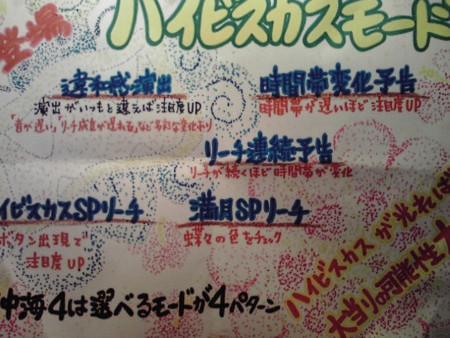 登場
ハイビスカスモード
違和感演出
演出がいつもと違えば注目度UP
「音が遅い」「リーチ成立が遅れる」など多彩な変化あり
時間帯変化予告
時間帯が遅いほど注目度UP
リーチ連続予告
リーチが続くほど時間帯が変化
イビスカスSPリーチ
ボタン出現で
注目度UP
満月SPリーチ
蝶々の色をチェック
ハイビスカスが光れば
大当りの可能性大
沖海4は選べるモードが4パターン